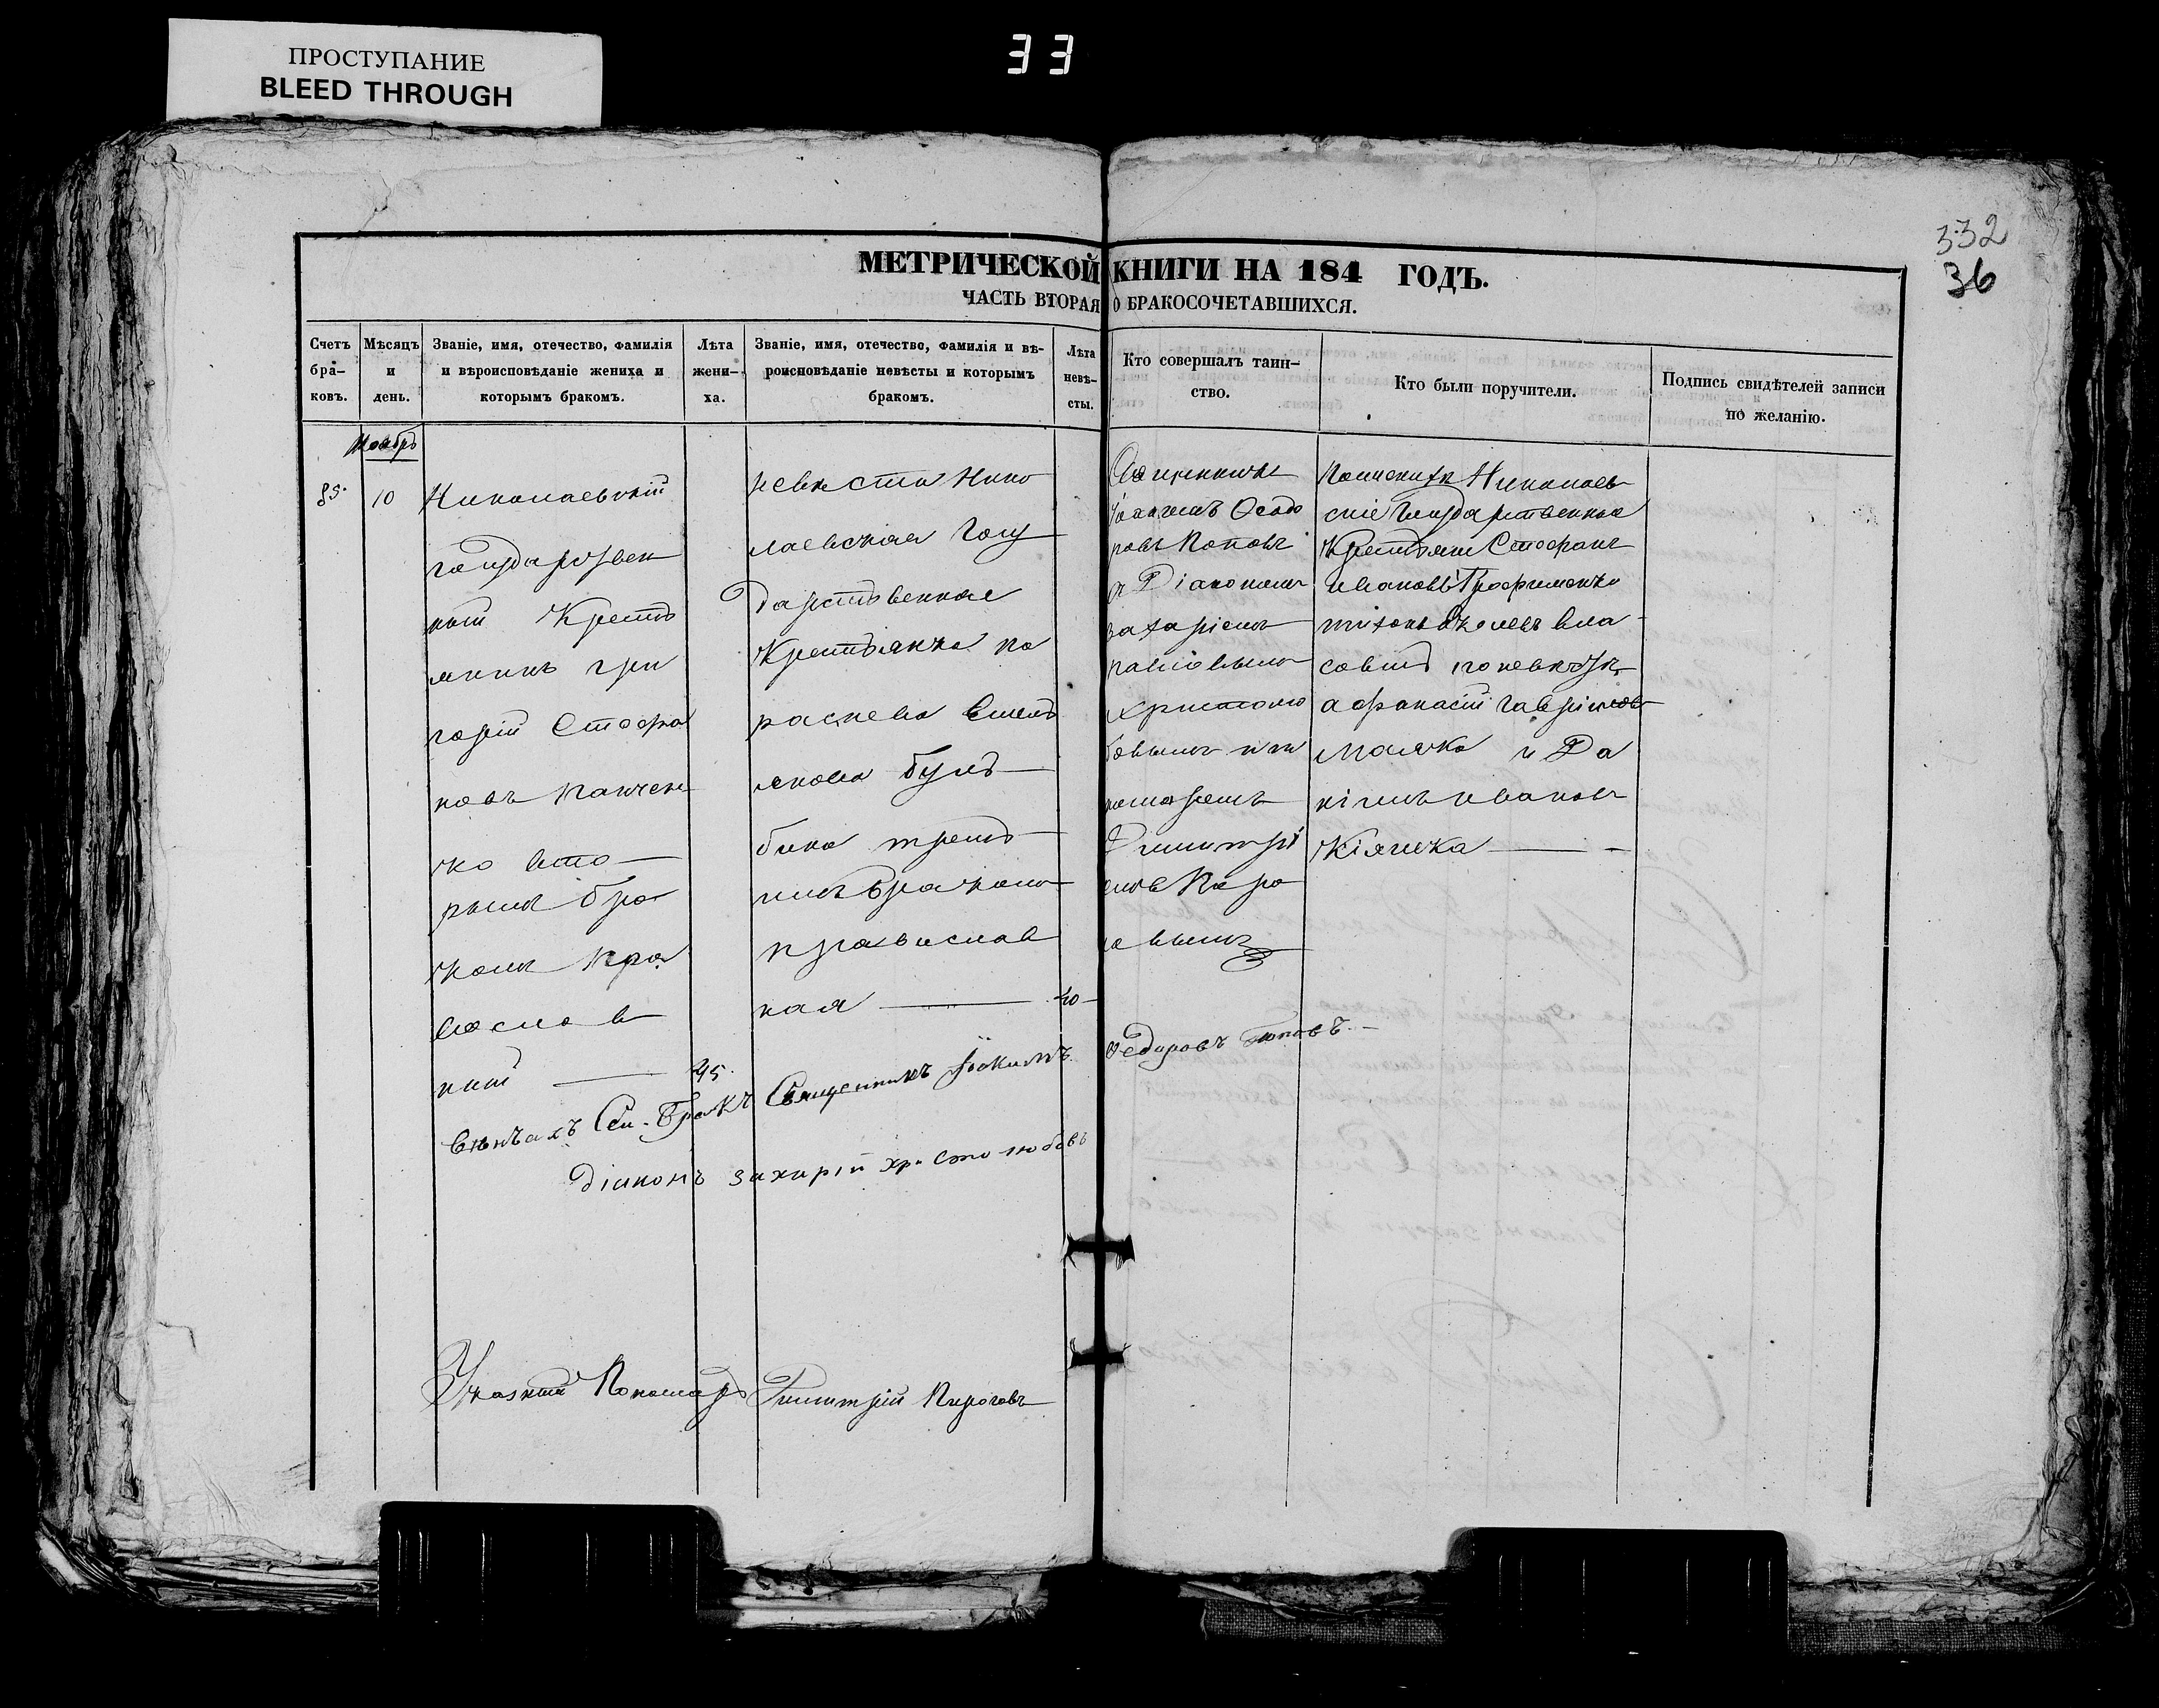 ПРОСТУПАНИЕ
BLEED THROUGH
33
332
36
МЕТРИЧЕСКОЙ КНИГИ НА 184 ГОДЪ.
ЧАСТЬ ВТОРАЯ О БРАКОСОЧЕТАВШИХСЯ.
Счетъ бра-
ковъ.
Мѣсяцъ
и
день.
Званіе, имя, отечество, фамилія
и вѣроисповѣданіе жениха и
которымъ бракомъ.
Лѣта
жени-
ха.
Званіе, имя, отечество, фамилія и вѣ-
роисповѣданіе невѣсты и которымъ
бракомъ.
Лѣта
невѣ-
сты.
Кто совершалъ таин-
ство.
Кто были поручители.
Подпись свидѣтелей записи
по желанію.
Ноябрь
85.
10
Николаевскій
государствен
ный Кресть
янинъ Гри
горій Стефа
новъ Панчен
ко вто
рымъ бра
комъ пра
вослав
ный
45.
невѣста Нико
лаевская Госу
дарственная
Крестьянка Па
раскева Емель
янова
треть
имъ бракомъ
православ
ная
40
Священникъ
Ѳеодо
ровъ Поповъ
и Діакономъ
Захаріемъ
Христолю
бовымъ и по
номаремъ
Димитрі
емъ Пиро
говымъ
по женихѣ Николаев
скіе Государственные
Крестьяне Стефанъ
Ивановъ Трофименко
Вла
совъ по невѣстѣ
Афанасій Гавриловъ
и Да
ніилъ Ивановъ
Кіяшка
вѣнчалъ Сей Бракъ Священникъ Іоакимъ Федоровъ Поповъ.
Діаконъ Захарій Христолюбовъ
Указный Пономарь Димитрій Пироговъ